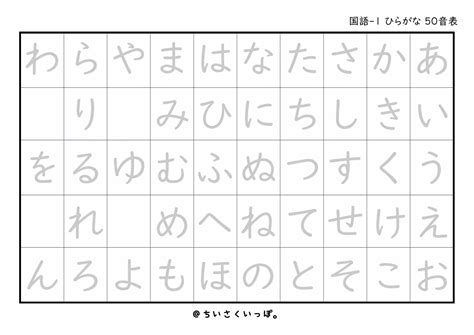 国語-1 ひらがな 50音表
わ ら や ま は な た さ か あ
り み ひ に ち し き い
を る ゆ む ふ ぬ つ す く う
れ め へ ね て せ け え
ん ろ よ も ほ の と そ こ お
@ちいさくいっぽ。